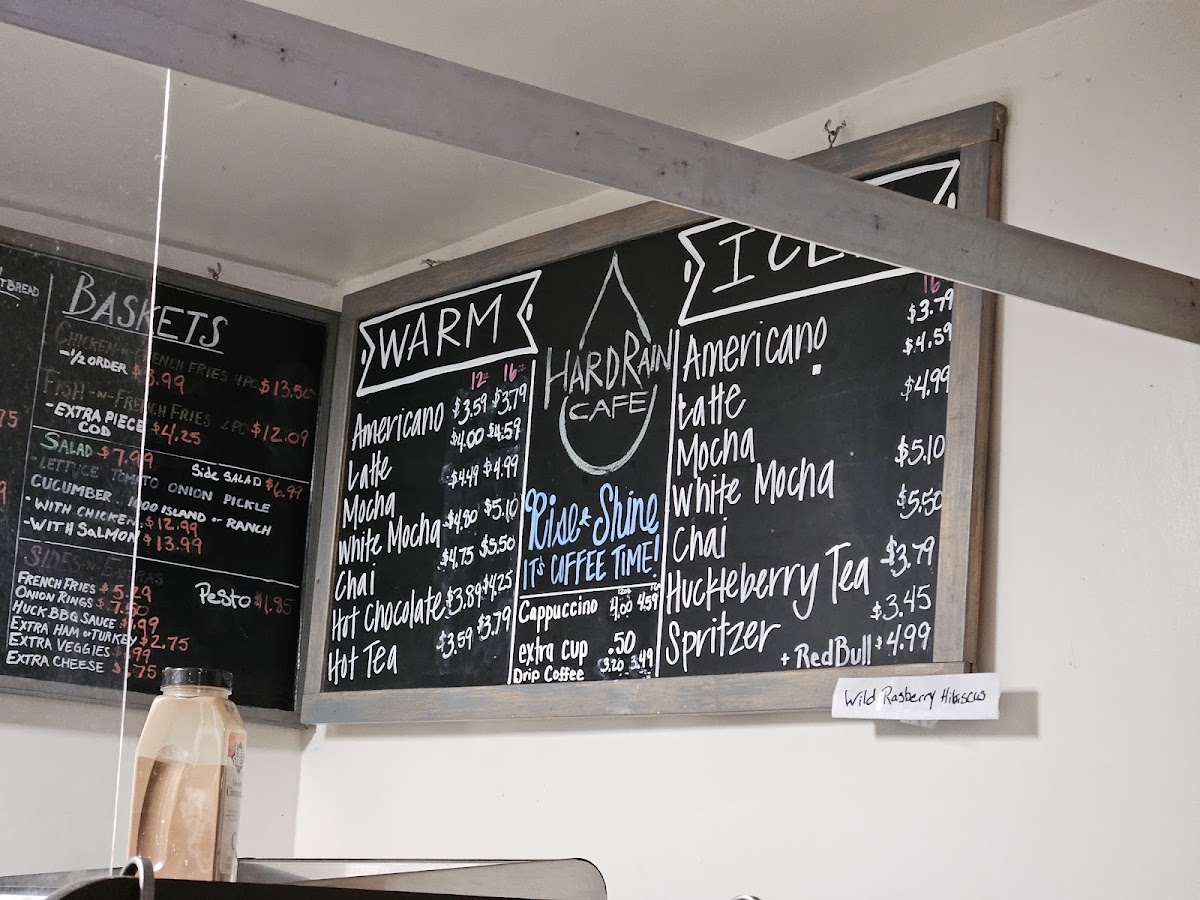 TBREAD
BASKETS
CHICKEN-N-FRENCH FRIES 4PC $13.50
-1/2 ORDER
FISH-N-FRENCH FRIES 2PC $12.09
-EXTRA PIECE COD $4.25
SALAD $7.99 Side SALAD $6.99
-LETTUCE TOMATO ONION PICKLE
CUCUMBER 1000 ISLAND or RANCH
-WITH CHICKEN $12.99
-WITH SALMON $13.99
SIDES-N-EXTRAS
Pesto $1.85
FRENCH FRIES $5.29
ONION RINGS $7.50
HUCK BBQ SAUCE
EXTRA HAM or TURKEY $2.75
EXTRA VEGGIES
EXTRA CHEESE
WARM
12oz 16oz
Americano $3.59 $3.79
Latte $4.00 $4.59
Mocha $4.49 $4.99
White Mocha $4.80 $5.10
Chai $4.75 $5.50
Hot Chocolate $3.89 $4.25
Hot Tea $3.59 $3.79
HARD RAIN
CAFE
Rise & Shine
IT'S COFFEE TIME!
Cappuccino 4.00 4.59
extra cup .50
Drip Coffee 3.20 3.49
ICE
16
Americano $3.79
Latte $4.59
Mocha $4.99
White Mocha $5.10
Chai $5.50
Huckleberry Tea $3.79
Spritzer $3.45
+ RedBull $4.99
Wild Rasberry Hibiscus